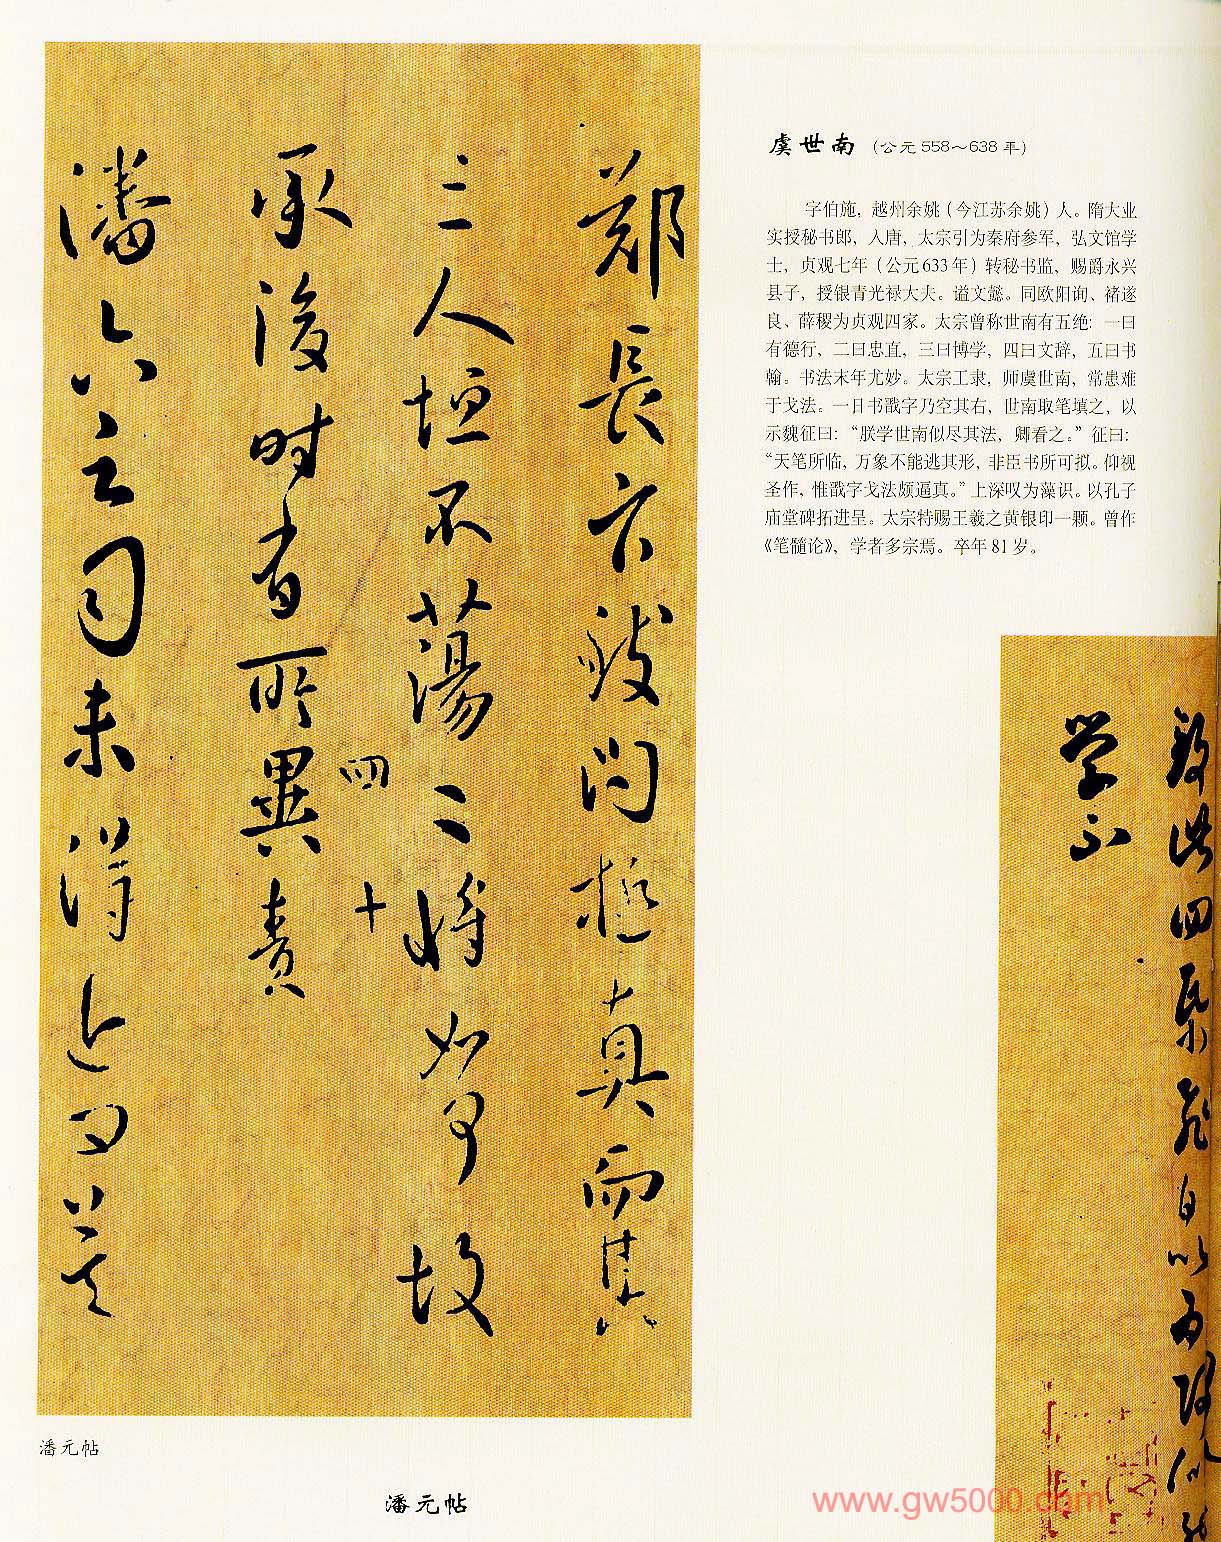 虞世南（公元558～638年）
字伯施，越州余姚（今江苏余姚）人。隋大业
实授秘书郎，入唐，太宗引为秦府参军，弘文馆学
士，贞观七年（公元633年）转秘书监，赐爵永兴
县子，授银青光禄大夫。谥文懿。同欧阳询、褚遂
良、薛稷为贞观四家。太宗曾称世南有五绝：一曰
有德行，二曰忠直，三曰博学，四曰文辞，五曰书
翰。书法末年尤妙。太宗工隶，师虞世南，常患难
于戈法。一日书戬字乃空其右，世南取笔填之，以
示魏征曰：“朕学世南似尽其法，卿看之。”征曰：
“天笔所临，万象不能逃其形，非臣书所可拟。仰视
圣作，惟戬字戈法颇逼真。”上深叹为藻识。以孔子
庙堂碑拓进呈。太宗特赐王羲之黄银印一颗。曾作
《笔髓论》，学者多宗焉。卒年81岁。
鄭長官致問極真而其
三人恒不蕩二將如何故
四十
承後時有所異責
潘六云司未得近問莫
潘元帖
潘元帖
www.gw5000.com